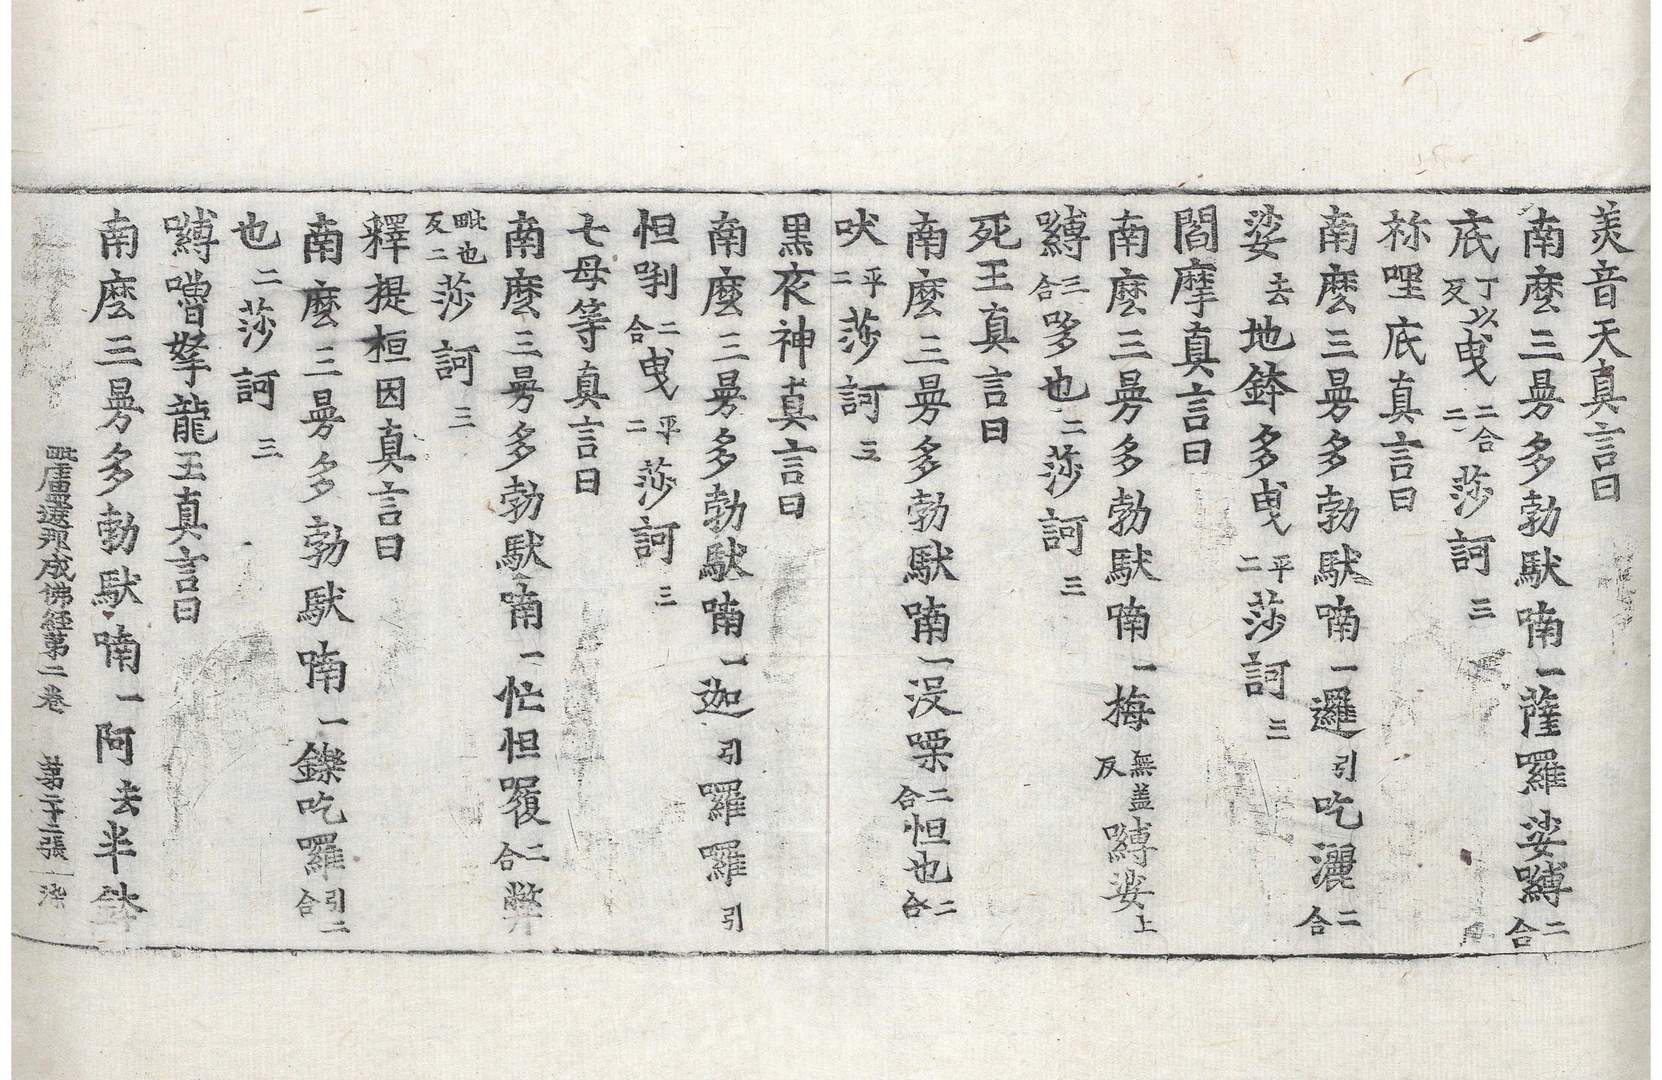 美音天真言曰
南麽三曼多勃馱喃一薩羅娑嚩二合
底丁以反曳二合二莎訶三
祢哩底真言曰
南麽三曼多勃馱喃一邏引吃灑二合
娑去地鉢多曳平二莎訶三
閻摩真言曰
南麽三曼多勃馱喃一梅無盖反嚩娑上
嚩三合哆也二莎訶三
死王真言曰
南麽三曼多勃馱喃一没㗚二合怛也二合
吠平二莎訶三
黑夜神真言曰
南麽三曼多勃馱喃一迦引囉囉引
怛唎二合曳平二莎訶三
七母等真言曰
南麽三曼多勃馱喃一忙怛履二合弊
毗也反二莎訶三
釋提桓因真言曰
南麽三曼多勃馱喃一鑠吃囉引二合
也二莎訶三
嚩嚕拏龍王真言曰
南麽三曼多勃馱喃一阿去半鉢
毗盧遮那成佛經第二卷 第二十二張 染